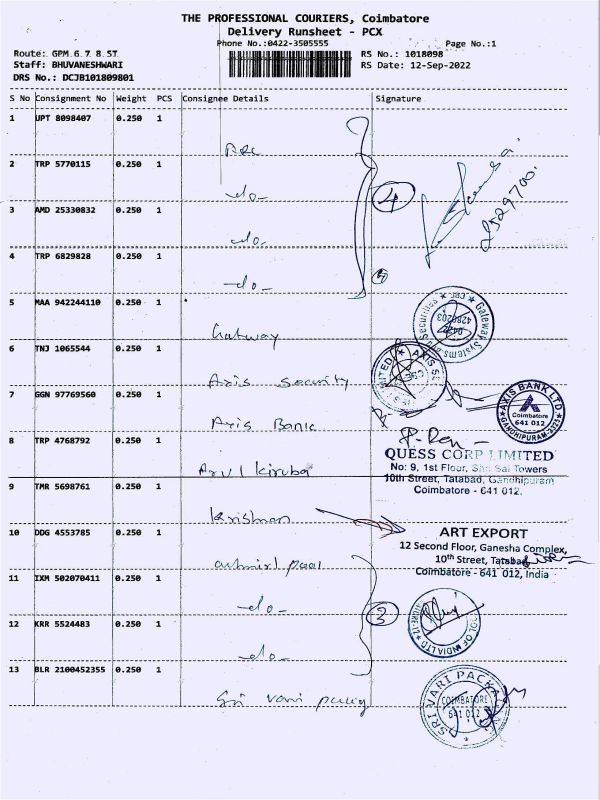 THE PROFESSIONAL COURIERS, Coimbatore
Delivery Runsheet - PCX
Phone No.:0422-3505555
Page No.:1
Route: GPM 6 7 8 ST
RS No.: 1018098
Staff: BHUVANESHWARI
RS Date: 12-Sep-2022
DRS No.: DCJB101809801
S No Consignment No Weight PCS Consignee Details Signature
1 UPT 8098407 0.250 1
ARC
2 TRP 5770115 0.250 1
-do-
3 AMD 25330832 0.250 1
-do-
4 TRP 6829828 0.250 1
-do-
4
5 MAA 942244110 0.250 1
Gateway
6 TNJ 1065544 0.250 1
Axis security
7 GGN 97769560 0.250 1
Axis Bank
AXIS BANK LTD
Coimbatore
641 012
8 TRP 4768792 0.250 1
Arul Kiruba
QUESS CORP LIMITED
No: 9, 1st Floor, Shri Sai Towers
10th Street, Tatabad, Gandhipuram
Coimbatore - 641 012.
9 TMR 5698761 0.250 1
Krishnan
10 DDG 4553785 0.250 1
ART EXPORT
12 Second Floor, Ganesha Complex,
10th Street, Tatabad
Coimbatore - 641 012, India
11 IXM 502070411 0.250 1
-do-
3
12 KRR 5524483 0.250 1
-do-
13 BLR 2100452355 0.250 1
Sri vari
SRI VARI PACKA
COIMBATORE
641 012